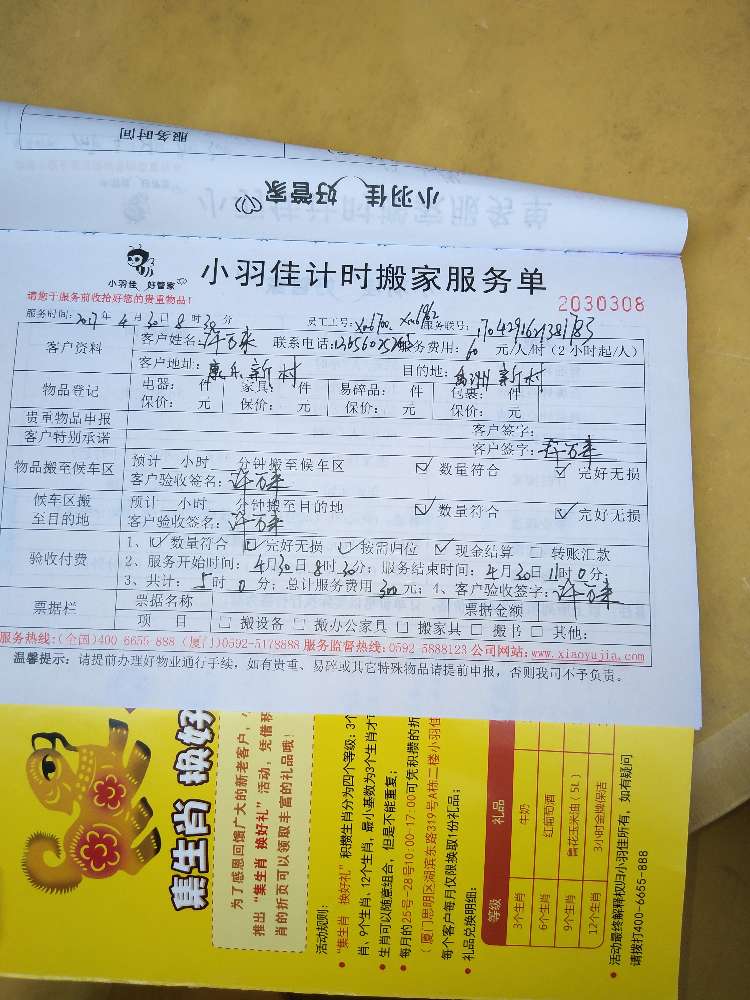 服务时间
小羽佳 好管家
小羽佳 好管家
小羽佳计时搬家服务单
请您于服务前收拾好您的贵重物品!
2030308
服务时间: 2017年 4月 30日 8时 30分 员工工号: 服务联号:
客户资料
客户姓名: 许万来 联系电话: 服务费用: 60 元/人/时(2小时起/人)
客户地址: 康乐新村 目的地: 新村
物品登记
电器: 件 家具: 件 易碎品: 件 包裹: 件
保价: 元 保价: 元 保价: 元 保价: 元
贵重物品申报 客户签字:
客户特别承诺 客户签字: 许万来
物品搬至候车区
预计 小时 分钟搬至候车区 ☑ 数量符合 ☑ 完好无损
客户验收签名: 许万来
候车区搬至目的地
预计 小时 分钟搬至目的地 ☑ 数量符合 ☑ 完好无损
客户验收签名: 许万来
验收付费
1、☑ 数量符合 ☑ 完好无损 ☑ 按需归位 ☑ 现金结算 □ 转账汇款
2、服务开始时间: 4月30日8时30分; 服务结束时间: 4月30日11时0分;
3、共计: 5时0分; 总计服务费用 300元; 4、客户验收签字: 许万来
票据栏
票据名称 票据金额
项 目 □ 搬设备 □ 搬办公家具 □ 搬家具 □ 搬书 □ 其他:
服务热线:(全国)400-6655-888 (厦门)0592-5178888 服务监督热线:0592-5888123 公司网站:www.xiaoyujia.com
温馨提示: 请提前办理好物业通行手续, 如有贵重、易碎或其它特殊物品请提前申报, 否则我司不予负责。
集生肖 换好
为了感恩回馈广大的新老客户,
推出“集生肖 换好礼”活动, 凭借积
肖的折页可以领取丰富的礼品哦!
活动规则:
• “集生肖 换好礼”积攒生肖分为四个等级: 3个
肖、9个生肖、12个生肖, 最小基数为3个生肖才
• 生肖可以随意组合, 但是不能重复;
• 每月的25号-28号10:00-17:00可凭积攒的折
(厦门思明区湖滨东路319号A栋二楼小羽佳
每个客户每月仅限换取1份礼品;
• 礼品兑换明细:
等级 礼品
3个生肖 牛奶
6个生肖 红葡萄酒
9个生肖 鲁花玉米油(5L)
12个生肖 3小时金牌保洁
• 活动最终解释权归小羽佳所有, 如有疑问
请拨打400-6655-888